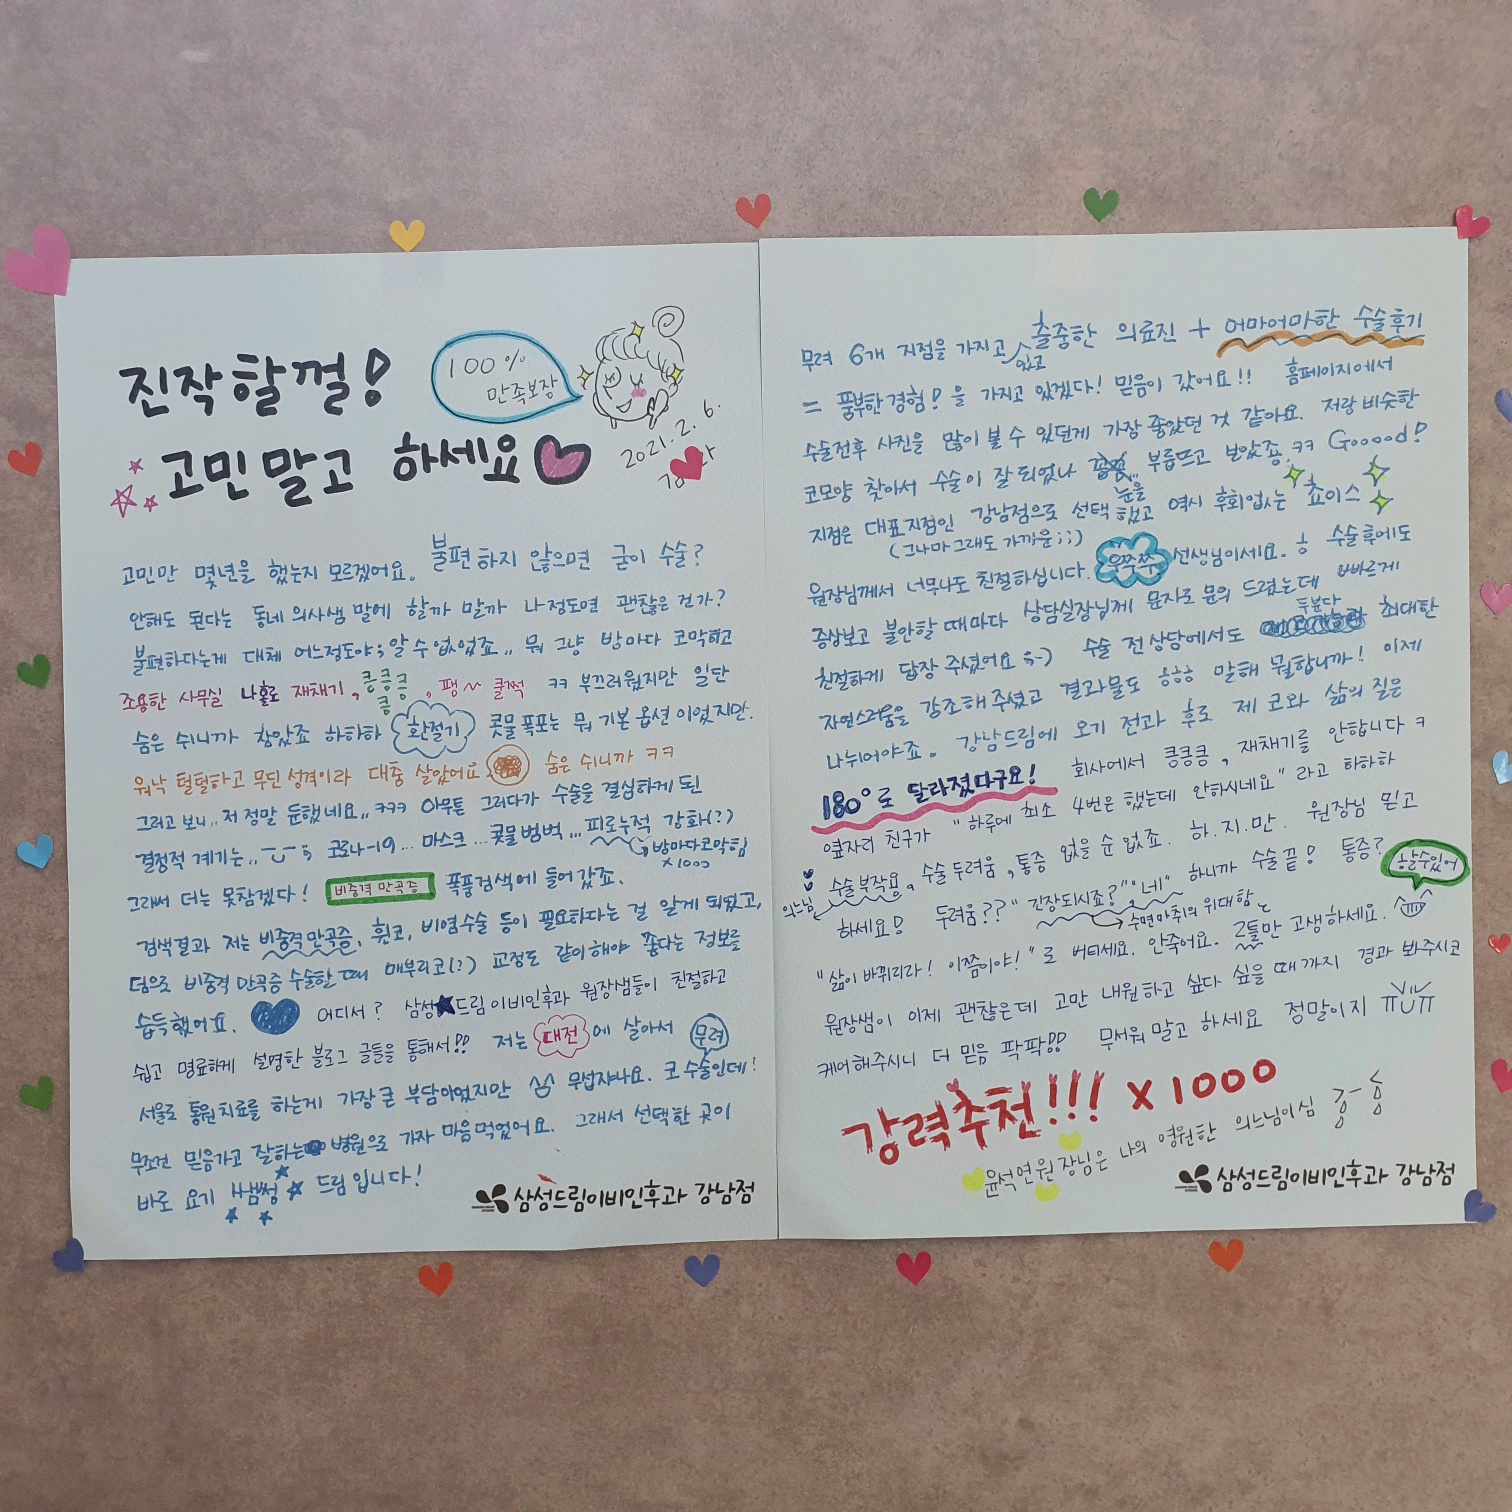 진작할껄!
고민말고 하세요
100%
만족보장
2021. 2. 6.
고민만 몇년을 했는지 모르겠어요. 불편하지 않으면 굳이 수술?
안해도 된다는 동네 의사샘 말에 할까 말까 나정도면 괜찮은건가?
불편하다는게 대체 어느정도야; 알 수 없었죠.. 뭐 그냥 밤마다 코막히고
조용한 사무실 나홀로 재채기, 킁킁킁킁, 팽~ 훌쩍 ㅋㅋ 부끄러웠지만 일단
숨은 쉬니까 참았죠 하하하 환절기 콧물 폭포는 뭐 기본 옵션이었지만.
워낙 털털하고 무딘 성격이라 대충 살았어요 숨은 쉬니까 ㅋㅋ
그러고 보니.. 저 정말 둔했네요.. ㅋㅋㅋ 아무튼 그러다가 수술을 결심하게 된
결정적 계기는.. 코로나-19... 마스크... 콧물범벅... 피로누적 강화(?)
밤마다코막힘
x1000
그래서 더는 못참겠다! 비중격 만곡증 폭풍검색에 들어갔죠.
검색결과 저는 비중격만곡증, 휜코, 비염수술 등이 필요하다는 걸 알게 되었고,
덤으로 비중격 만곡증 수술할 때 매부리코(?) 교정도 같이해야 좋다는 정보를
습득했어요. 어디서? 삼성드림이비인후과 원장샘들이 친절하고
쉽고 명료하게 설명한 블로그 글들을 통해서!! 저는 대전에 살아서 무려
서울로 통원치료를 하는게 가장 큰 부담이었지만 무섭쟈나요. 코수술인데!
무조건 믿음가고 잘하는 병원으로 가자 마음먹었어요. 그래서 선택한 곳이
바로 요기 쌤썽 드림입니다!
삼성드림이비인후과 강남점
무려 6개 지점을 가지고 있고 출중한 의료진 + 어마어마한 수술후기
= 풍부한경험!을 가지고 있겠다! 믿음이 갔어요!! 홈페이지에서
수술전후 사진을 많이 볼 수 있던게 가장 좋았던 것 같아요. 저랑 비슷한
코모양 찾아서 수술이 잘 되었나 눈을 부릅뜨고 보았죠. ㅋㅋ Gooood!
지점은 대표지점인 강남점으로 선택했고 역시 후회없는 쵸이스
(그나마 그래도 가까운;;)
원장님께서 너무나도 친절하십니다. 우쭈쭈 선생님이세요. 수술후에도
증상보고 불안할 때마다 상담실장님께 문자로 문의 드렸는데 빠르게
친절하게 답장 주셨어요 :-) 수술 전상담에서도 두분다 최대한
자연스러움을 강조해 주셨고 결과물도 ㅎㅎㅎ 말해 뭘합니까! 이제
나누어야죠. 강남드림에 오기 전과 후로 제 코와 삶의 질은
180°로 달라졌다구요! 회사에서 킁킁킁, 재채기를 안합니다 ㅋ
옆자리 친구가 "하루에 최소 4번은 했는데 안하시네요" 라고 하하하
수술부작용, 수술두려움, 통증 없을 순 없죠. 하.지.만. 원장님 믿고
의느님
하세요! 두려움?? "긴장되시죠?" "네" 하니까 수술 끝! 통증? 할수있어
수면마취의 위대함
"삶이 바뀌리라! 이쯤이야!"로 버티세요. 안죽어요. 2틀만 고생하세요.
원장쌤이 이제 괜찮은데 고만 내원하고 싶다 싶을때까지 경과 봐주시고
케어해주시니 더 믿음 팍팍!! 무서워 말고 하세요 정말이지 ㅠUㅠ
강력추천!!! x 1000
윤석연원장님은 나의 영원한 의느님이심
삼성드림이비인후과 강남점